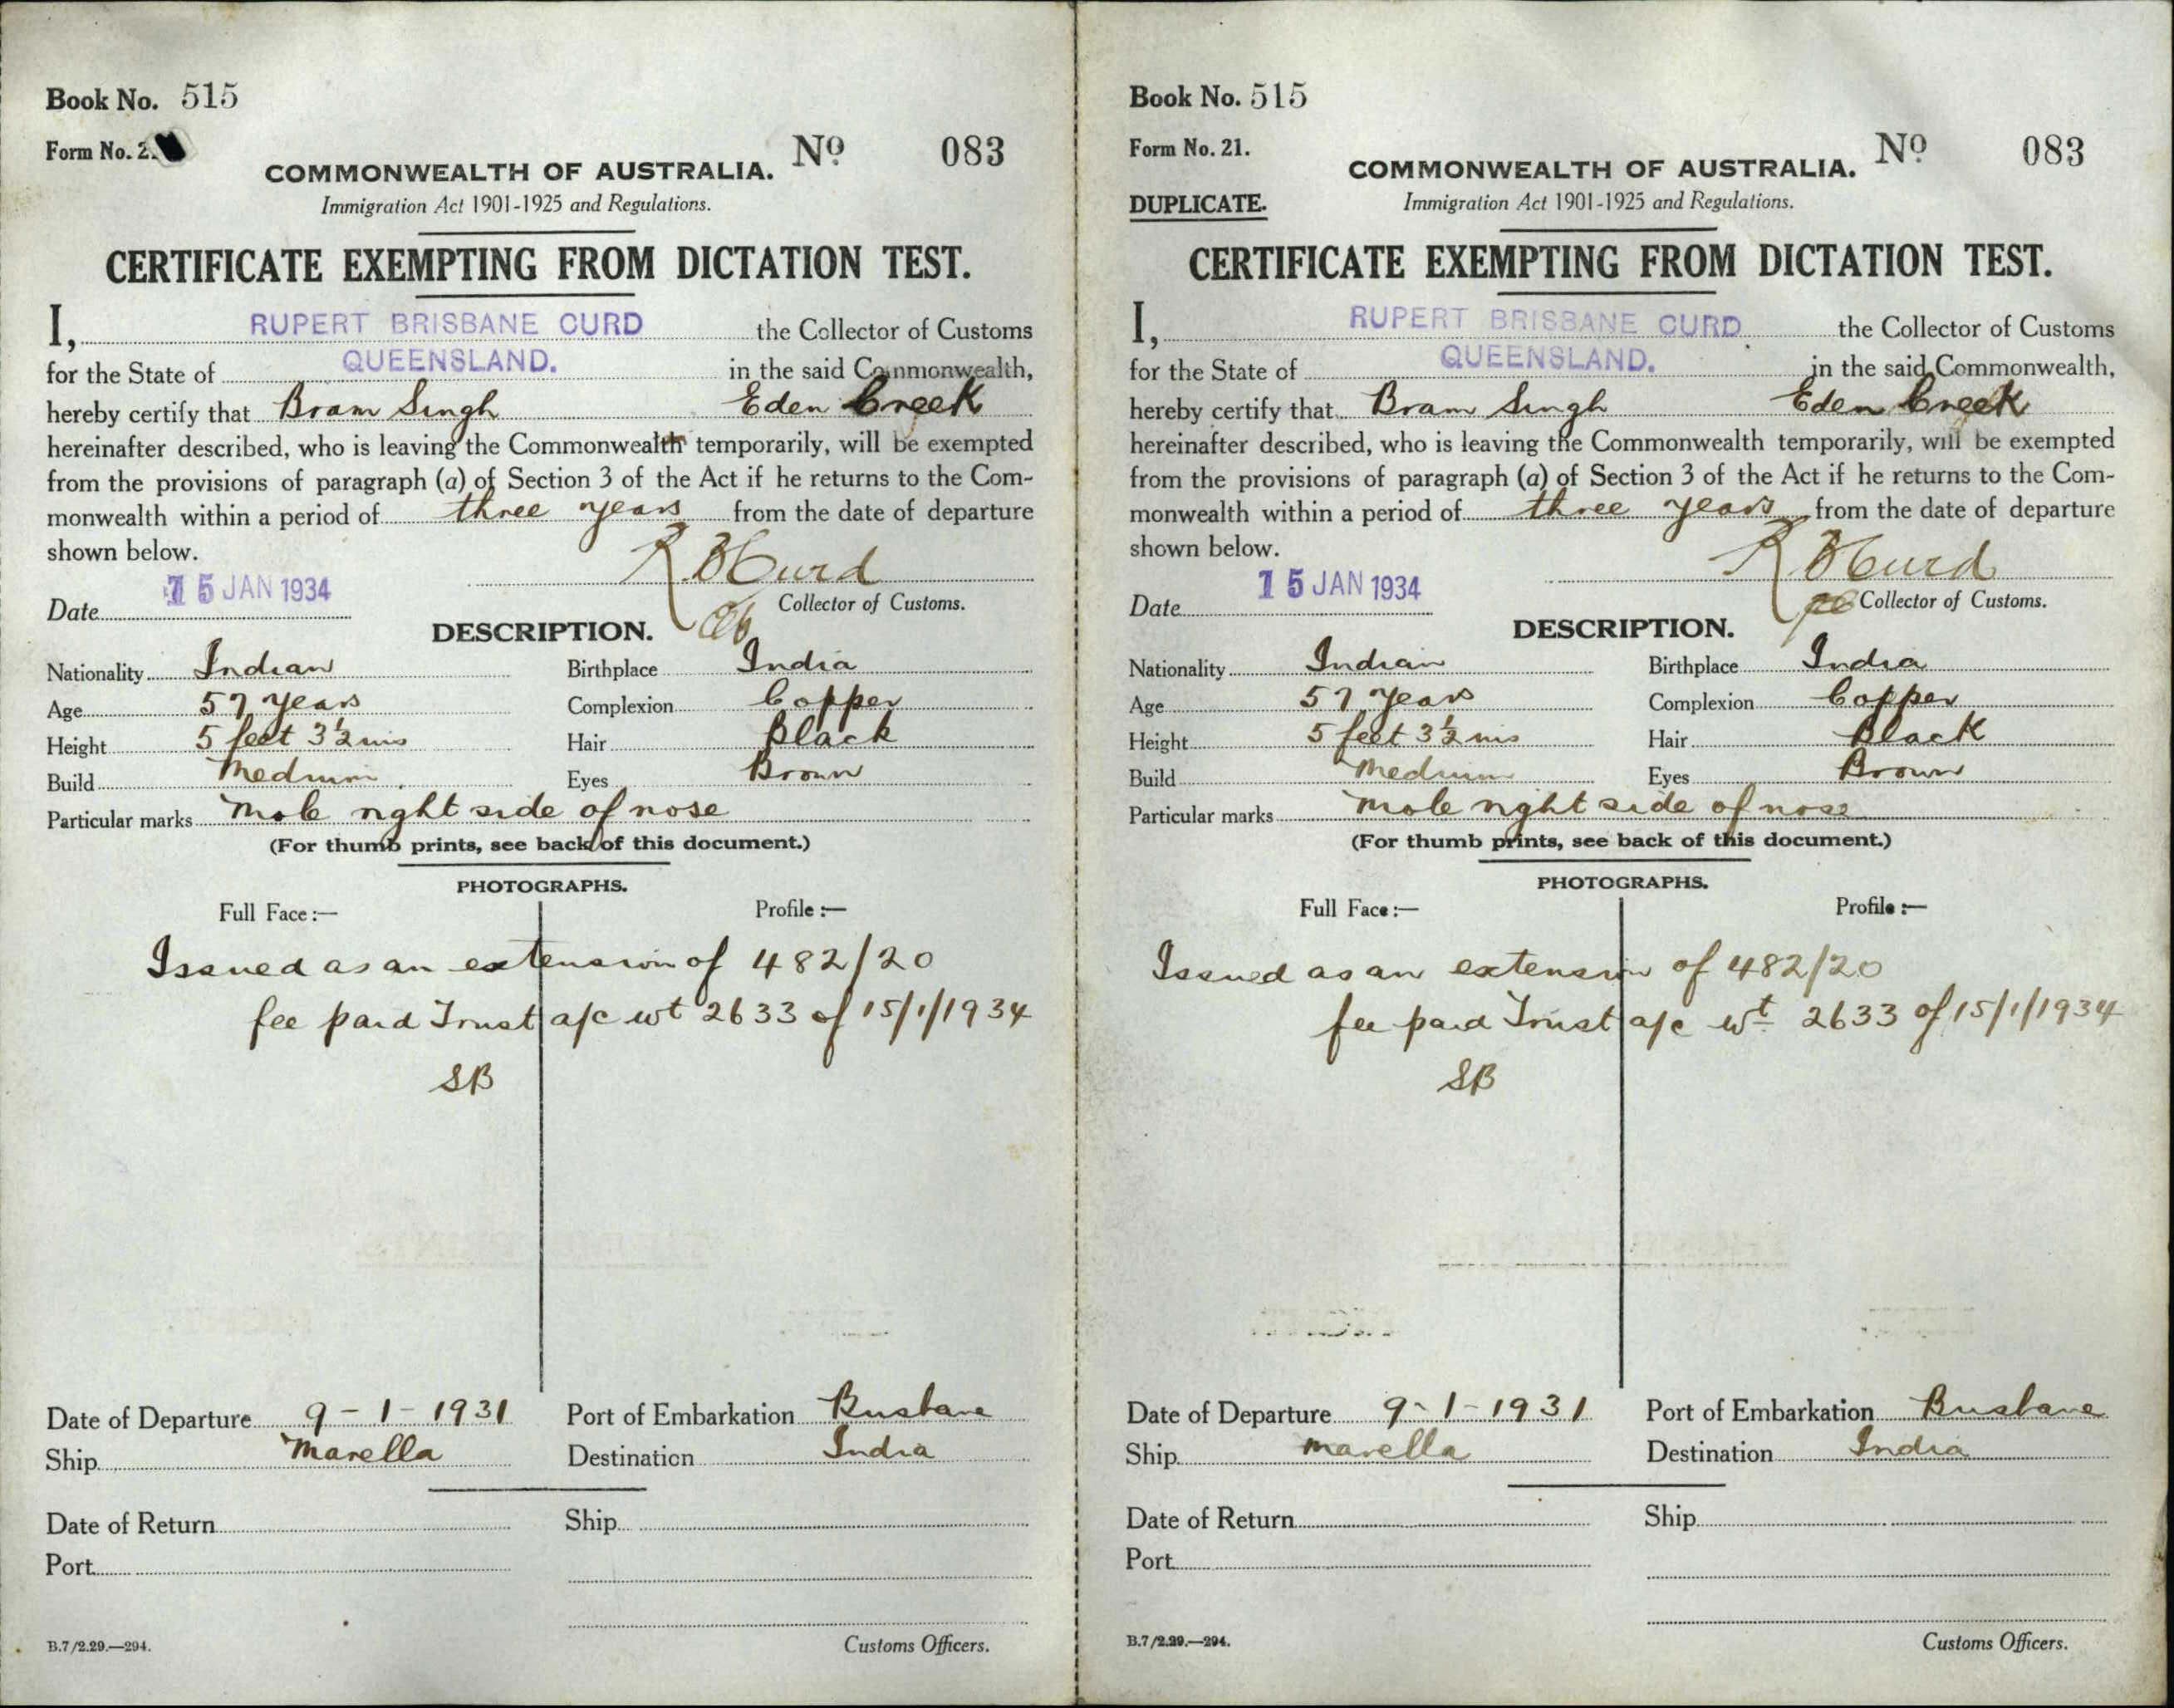 Book No. 515
Form No. 2
COMMONWEALTH OF AUSTRALIA. No 083
Immigration Act 1901-1925 and Regulations.
CERTIFICATE EXEMPTING FROM DICTATION TEST.
I, RUPERT BRISBANE CURD the Collector of Customs
for the State of QUEENSLAND. in the said Commonwealth,
hereby certify that Bram Singh Eden Creek
hereinafter described, who is leaving the Commonwealth temporarily, will be exempted
from the provisions of paragraph (a) of Section 3 of the Act if he returns to the Com-
monwealth within a period of three years from the date of departure
shown below.
R B Curd
Date 15 JAN 1934
Collector of Customs.
DESCRIPTION.
Nationality Indian Birthplace India
Age 57 years Complexion Copper
Height 5 feet 3½ ins Hair Black
Build Medium Eyes Brown
Particular marks Mole right side of nose
(For thumb prints, see back of this document.)
PHOTOGRAPHS.
Full Face :— Profile :—
Issued as an extension of 482/20
fee paid Trust a/c wt 2633 of 15/1/1934
SB
Date of Departure 9-1-1931 Port of Embarkation Brisbane
Ship Marella Destination India
Date of Return Ship
Port
B.7/2.29.—294. Customs Officers.
Book No. 515
Form No. 21.
COMMONWEALTH OF AUSTRALIA. No 083
DUPLICATE. Immigration Act 1901-1925 and Regulations.
CERTIFICATE EXEMPTING FROM DICTATION TEST.
I, RUPERT BRISBANE CURD the Collector of Customs
for the State of QUEENSLAND. in the said Commonwealth,
hereby certify that Bram Singh Eden Creek
hereinafter described, who is leaving the Commonwealth temporarily, will be exempted
from the provisions of paragraph (a) of Section 3 of the Act if he returns to the Com-
monwealth within a period of three years from the date of departure
shown below.
R B Curd
Date 15 JAN 1934
Collector of Customs.
DESCRIPTION.
Nationality Indian Birthplace India
Age 57 years Complexion Copper
Height 5 feet 3½ ins Hair Black
Build Medium Eyes Brown
Particular marks Mole right side of nose
(For thumb prints, see back of this document.)
PHOTOGRAPHS.
Full Face :— Profile :—
Issued as an extension of 482/20
fee paid Trust a/c wt 2633 of 15/1/1934
SB
Date of Departure 9-1-1931 Port of Embarkation Brisbane
Ship Marella Destination India
Date of Return Ship
Port
B.7/2.29.—294. Customs Officers.